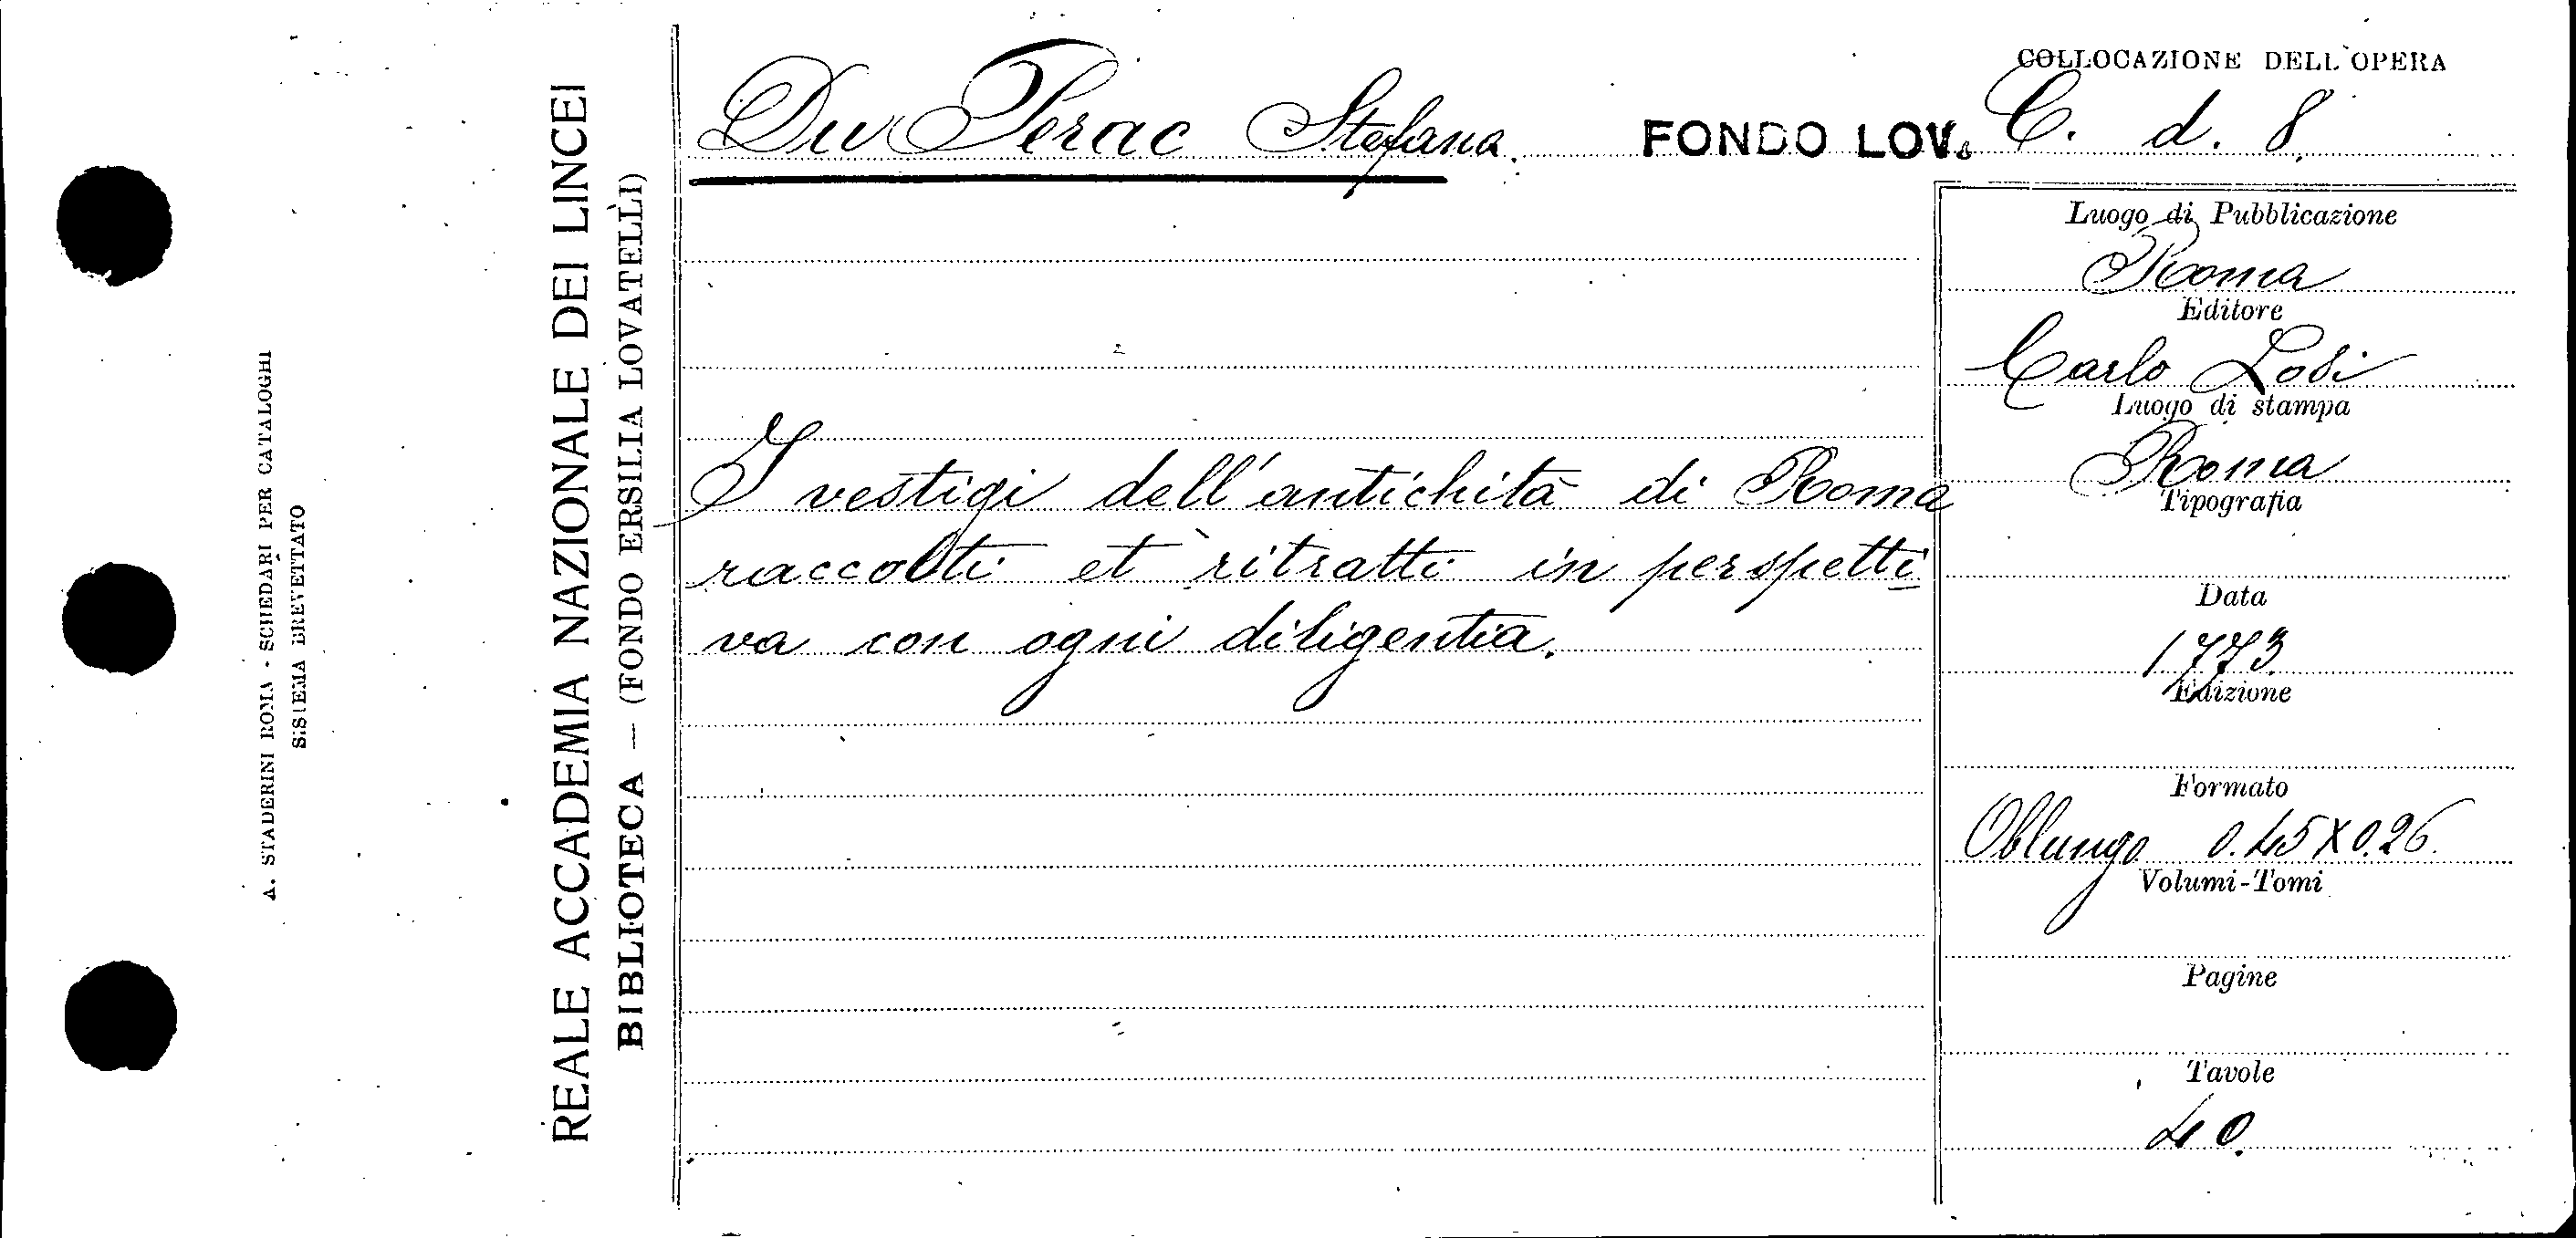 COLLOCAZIONE DELL'OPERA
Du Perac Stefana. FONDO LOV. C. d. 8.
A. STADERINI ROMA - SCHEDARI PER CATALOGHI
SISTEMA BREVETTATO
REALE ACCADEMIA NAZIONALE DEI LINCEI
BIBLIOTECA — (FONDO ERSILIA LOVATELLI)
I vestigi dell'antichità di Roma
raccolti et ritratti in perspetti
va con ogni diligentia.
Luogo di Pubblicazione
Roma
Editore
Carlo Losi
Luogo di stampa
Roma
Tipografia
Data
1773
Edizione
Formato
Oblungo 0.45 X 0.26.
Volumi-Tomi
Pagine
Tavole
40.